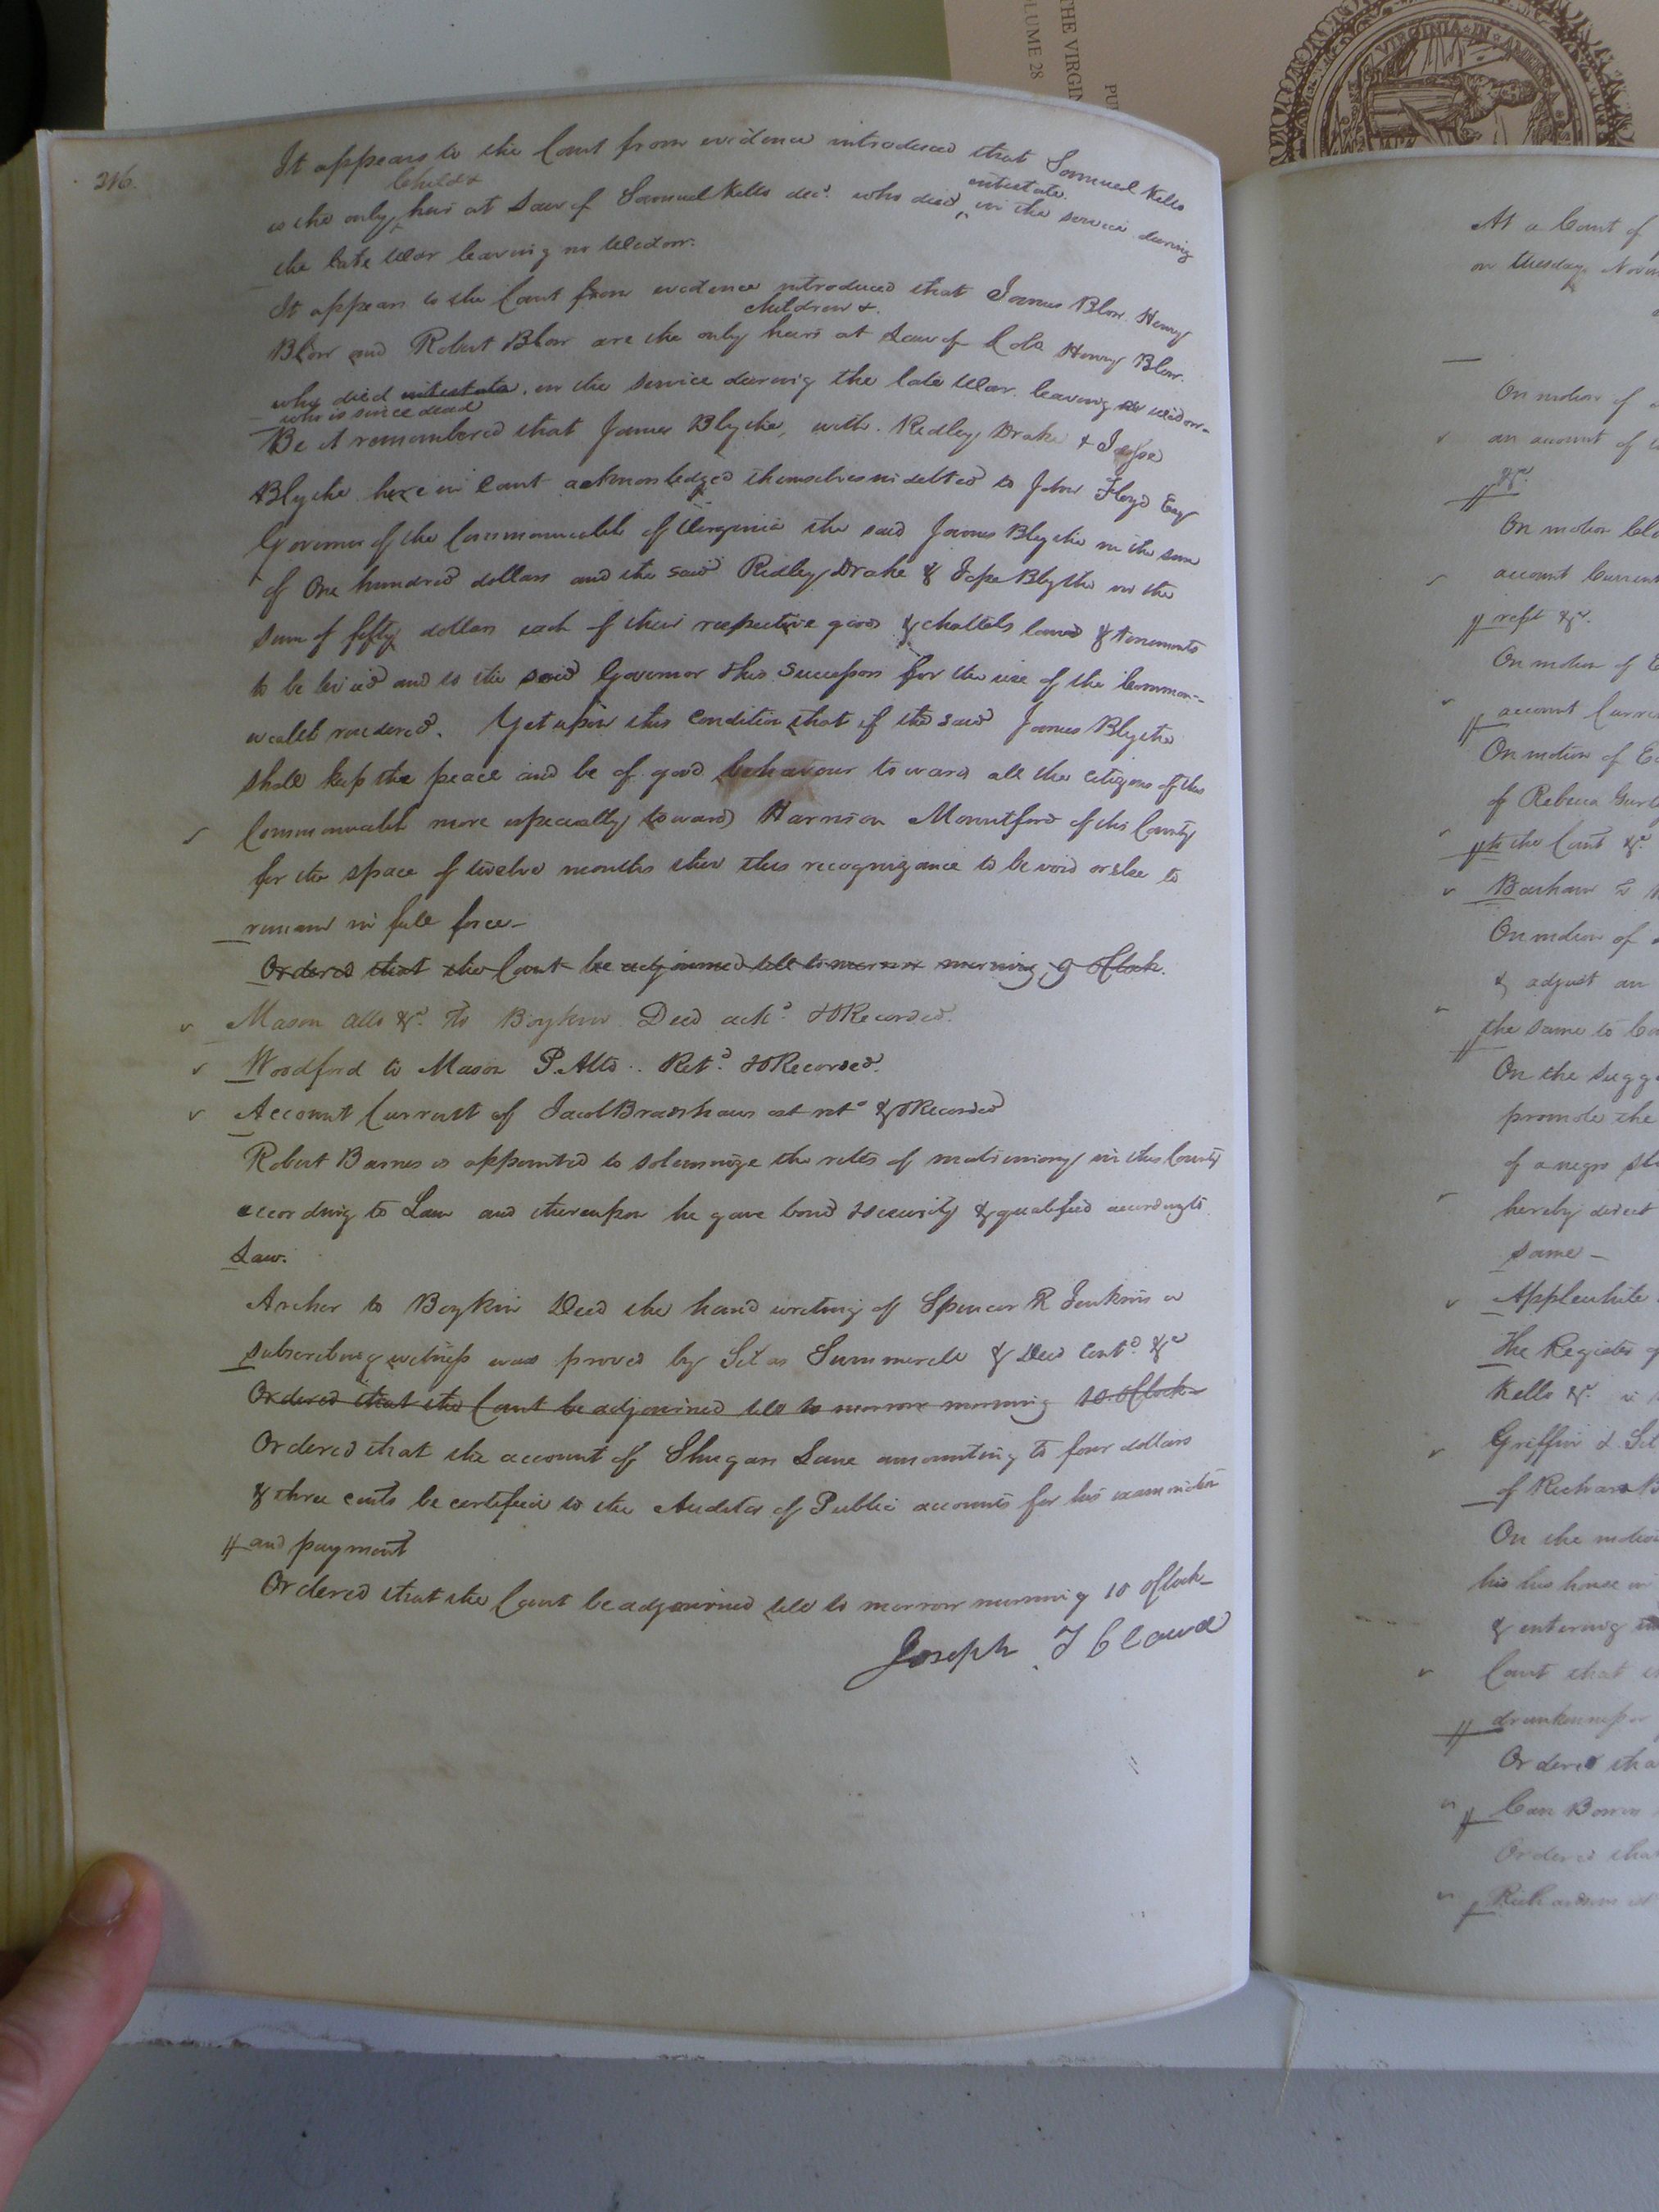 THE VIRGIN
OLUME 28
PU
VIRGINIA IN
316.
It appears to the Court from evidence introduced that Samuel Kello
is the only child & heir at Law of Samuel Kello decd. who died intestate in the service during
the late War leaving no Widow.
It appears to the Court from evidence introduced that James Blow Henry
Blow and Robert Blow are the only children & heirs at Law of Henry Blow.
who died intestate, in the service during the late War. leaving widow-
who is since dead
Be it remembered that James Blythe, with Ridley Drake & Jesse
Blythe here in Court acknowledged themselves indebted to John Floyd Esq
Governor of the Commonwealth of Virginia the said James Blythe in the sum
of One hundred dollars and the said Ridley Drake & Jesse Blythe in the
sum of fifty dollars each of their respective goods & chattels lands & tenements
to be levied and to the said Governor & his Successors for the use of the Common-
wealth rendered. Yet upon this condition that if the said James Blythe
shall keep the peace and be of good behaviour towards all the citizens of this
Commonwealth more especially towards Harrison Mountford of this County
for the space of twelve months then this recognizance to be void or else to
remain in full force-
Ordered that the Court be adjourned till to morrow morning 9 oClock.
Mason Allo &c. To Boykin Deed ackd. & ORecorded.
Woodford to Mason P. Atto .. Retd. & ORecorded.
Account Current of Jacob Bradshaws est retd & ORecorded
Robert Barnes is appointed to solemnize the rites of matrimony in this County
according to Law and thereupon he gave bond & security & qualified according to
Law.
Archer to Boykin Deed the hand writing of Spencer R Jenkins a
subscribing witness was proved by Silas Summerell & Deed Contd. &c
Ordered that the Court be adjourned till to morrow morning 10 oClock-
Ordered that the account of Lane amounting to four dollars
& three cents be certified to the Auditor of Public accounts for his examination
and payment
Ordered that the Court be adjourned till to morrow morning 10 oClock-
Joseph T Claud
At a Court of
on Tuesday Novem
On motion of
an account of
&c.
On motion
account Current
rest &c.
On motion of
account Curre
On motion of
of Rebecca
to the Court &c.
Barham
On motion of
& adjust an
the same to
On the sugg
promote the
of a negro
hereby direct
same -
Applewhite
The Register of
Kello &c.
Griffin &
of Richard B
On the motion
his house in
& entering
Court that
drunkenness or
Ordered tha
Ordered that
Richardson